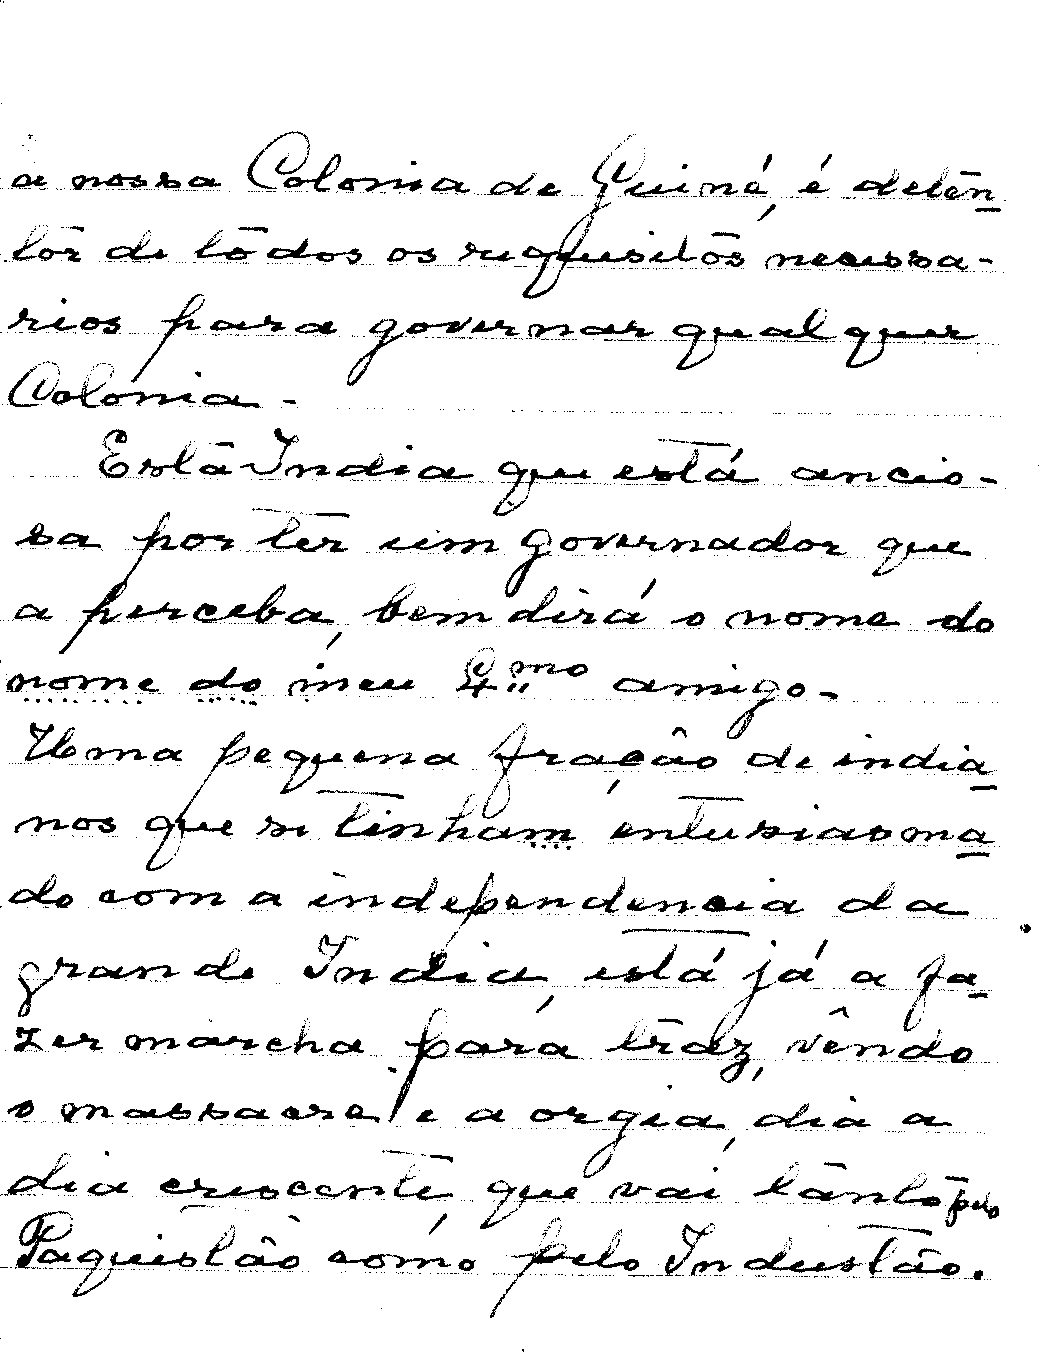 a nossa Colonia de Guiné, é detên
tôr de tôdos os requisitos necessa-
rios para governar qualquer
Colonia.-
Esta India que está ancio-
sa por ter um governador que
a perceba, bem dirá o nome do
nome do meu Exmo amigo.-
Uma pequena fração de india
nos que se tinham entusiasma
do com a independencia da
grande India, está já a fa-
zer marcha para traz, vêndo
o massacre e a orgia, dia a
dia crescente, que vai tanto pelo
Paquistão como pelo Industão.